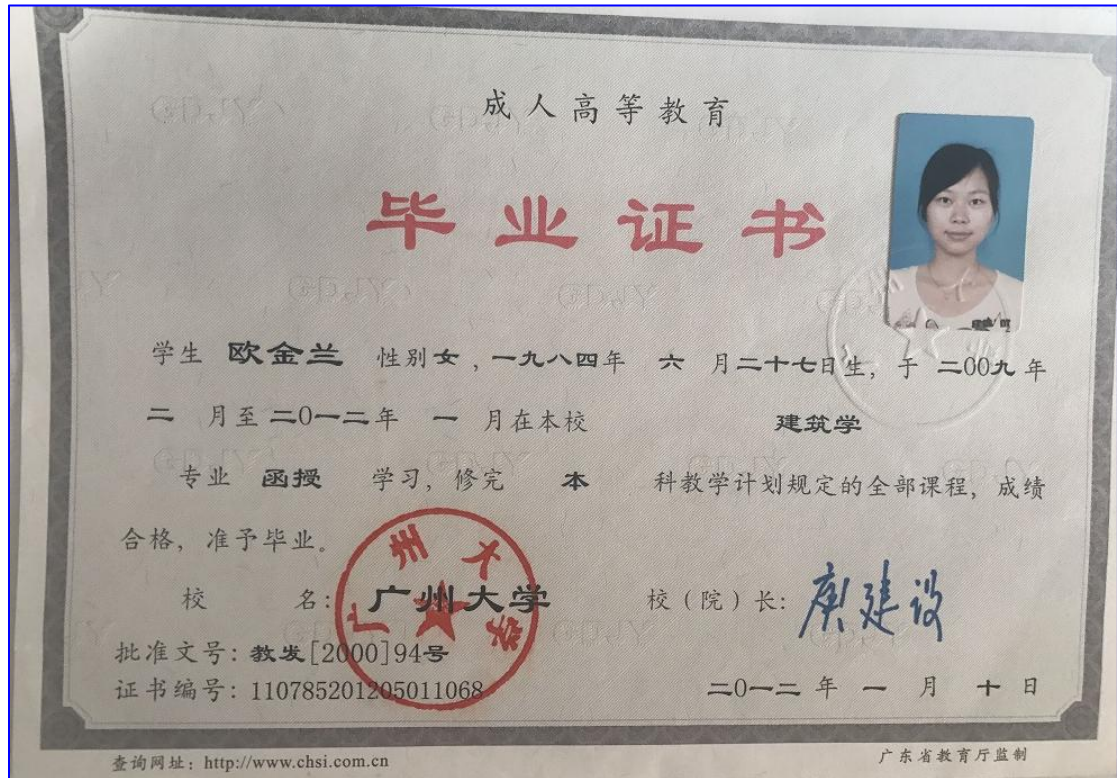 成人高等教育
毕业证书
学生 欧金兰 性别女，一九八四年 六 月二十七日生，于 二00九 年
二 月至 二0一二年 一 月在本校 建筑学
专业 函授 学习，修完 本 科教学计划规定的全部课程，成绩
合格，准予毕业。
校 名：广州大学 校（院）长：庾建设
批准文号：教发[2000]94号
证书编号：110785201205011068
二0一二 年 一 月 十 日
广州大学
查询网址：http://www.chsi.com.cn
广东省教育厅监制